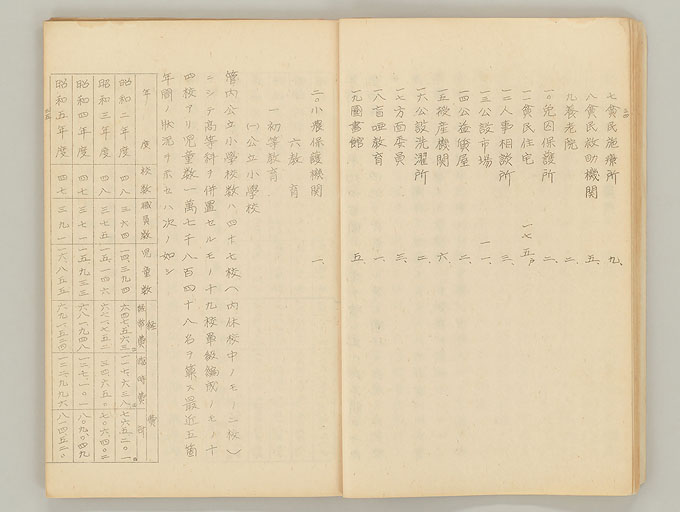 七貧民施療所 九、
八貧民救助機関 五、
九養老院 二、
一〇免囚保護所 二、
一一貧民住宅 一七五戸
一二人事相談所 三、
一三公設市場 一一、
一四公益質屋 二、
一五授産機関 六、
一六公設洗濯所 二、
一七方面委員 三、
一八盲唖教育 一、
一九図書館 五、
二〇小農保護機関 一、
六教育
一初等教育
(一)公立小学校
管内公立小学校数ハ四十七校(内休校中ノモノ二校)
ニシテ高等科ヲ併置セルモノ十九校単級編成ノモノ十
四校アリ児童数一萬七千八百四十八名ヲ算ス最近五箇
年間ノ状況ヲ示セハ次ノ如シ
年度 校数 職員数 児童数 経費
経常費 臨時費 計
昭和二年度 四八 三六四 一四、三九四
昭和三年度 四八 三七五 一五、一四六
昭和四年度 四七 三八一 一五、九三三
昭和五年度 四七 三九一 一六、八五五